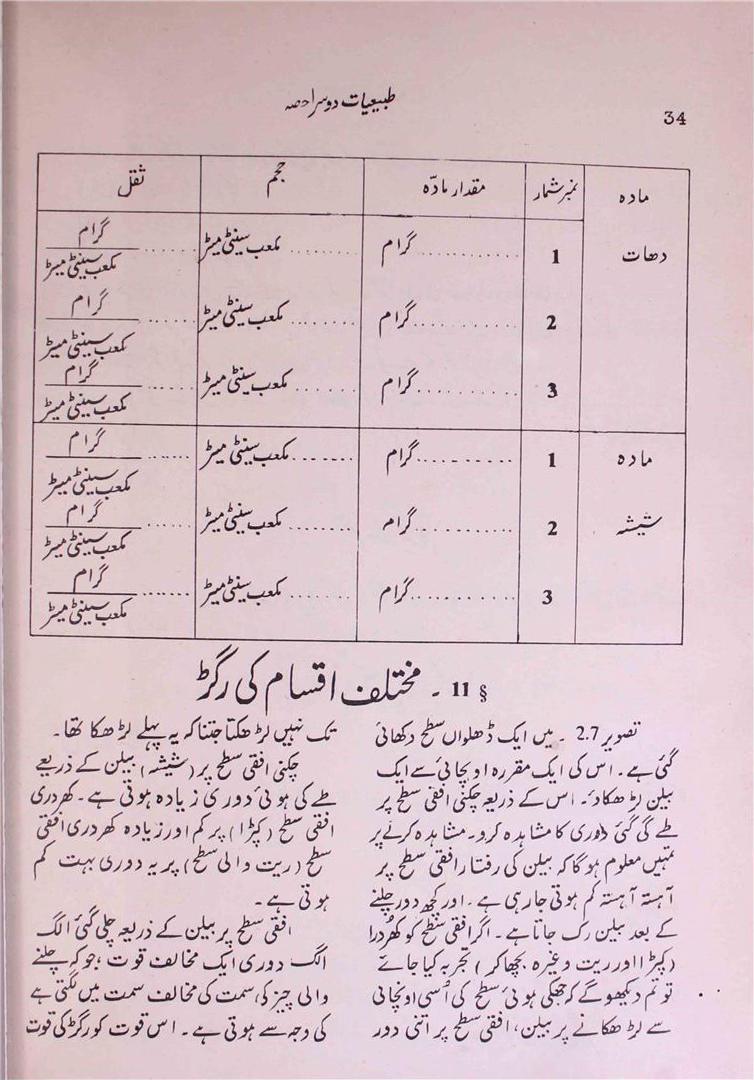 34
طبیعیات دوسرا حصہ
مادہ نمبر شمار مقدار مادّہ حجم ثقل
دھات 1 ............ گرام ...... مکعب سینٹی میٹر ...... گرام / مکعب سینٹی میٹر
2 ............ گرام ...... مکعب سینٹی میٹر ...... گرام / مکعب سینٹی میٹر
3 ............ گرام ...... مکعب سینٹی میٹر ...... گرام / مکعب سینٹی میٹر
مادہ 1 ............ گرام ...... مکعب سینٹی میٹر ...... گرام / مکعب سینٹی میٹر
شیشہ 2 ............ گرام ...... مکعب سینٹی میٹر ...... گرام / مکعب سینٹی میٹر
3 ............ گرام ...... مکعب سینٹی میٹر ...... گرام / مکعب سینٹی میٹر
§ 11 ۔ مختلف اقسام کی رگڑ
تصویر 2.7 ۔ میں ایک ڈھلواں سطح دکھائی
گئی ہے۔ اس کی ایک مقررہ اونچائی سے ایک
بیلن لڑھکاؤ۔ اس کے ذریعہ چکنی افقی سطح پر
طے کی گئی دوری کا مشاہدہ کرو۔ مشاہدہ کرنے پر
تمہیں معلوم ہوگا کہ بیلن کی رفتار افقی سطح پر
آہستہ آہستہ کم ہوتی جارہی ہے۔ اور کچھ دور چلنے
کے بعد بیلن رک جاتا ہے۔ اگر افقی سطح کو کھُردرا
(کپڑا اور ریت وغیرہ بچھا کر) تجربہ کیا جائے
تو تم دیکھو گے کہ جھکی ہوئی سطح کی اُسی اونچائی
سے لڑھکانے پر بیلن، افقی سطح پر اتنی دور
تک نہیں لڑھکتا جتنا کہ یہ پہلے لڑھکا تھا۔
چکنی افقی سطح پر (شیشہ) بیلن کے ذریعے
طے کی ہوئی دوری زیادہ ہوتی ہے۔ کھردری
افقی سطح (کپڑا) پر کم اور زیادہ کھردری افقی
سطح (ریت والی سطح) پر یہ دوری بہت کم
ہوتی ہے۔
افقی سطح پر بیلن کے ذریعہ چلی گئی الگ
الگ دوری ایک مخالف قوت، جو کہ چلنے
والی چیز کی سمت کی مخالف سمت میں لگتی ہے
کی وجہ سے ہوتی ہے۔ اس قوت کو رگڑ کی قوت